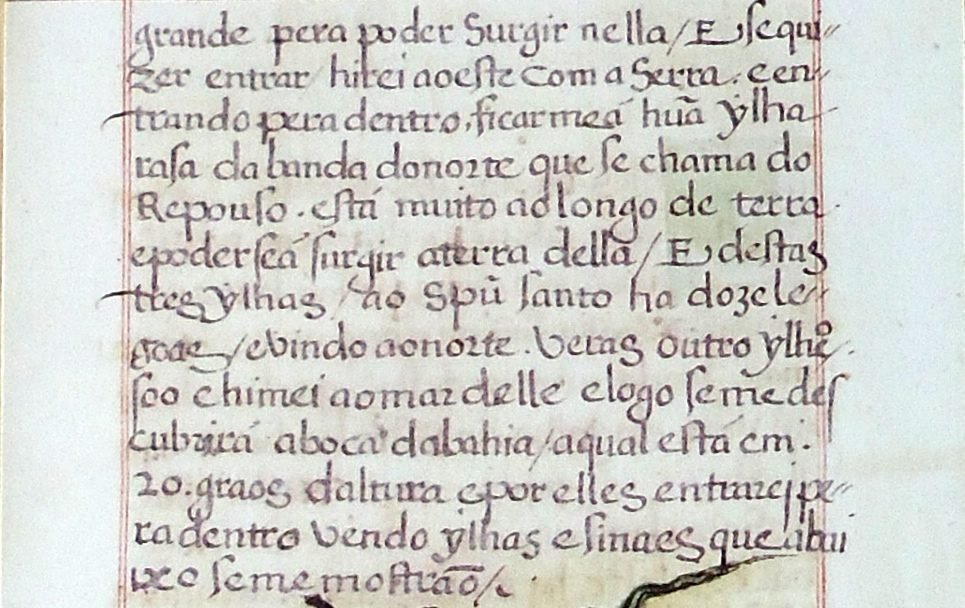 grande pera poder Surgir nella / E se qui-
zer entrar hirei aoeste com a Serra. e en-
trando pera dentro, ficarmeá huã ylha
rasa da banda do norte que se chama do
Repouso. está muito ao longo de terra.
e poderseá surgir a terra della / E destas
tres ylhas / ao Spũ santo ha doze le-
goas / e vindo ao norte. Veras outro ylhẽo.
soo e himei ao mar delle e logo se me des
cubrirá a boca da bahia / a qual está em.
20. graos daltura e por elles entrarei pe-
ra dentro Vendo ylhas e sinaes que abai
xo se me mostrão /.